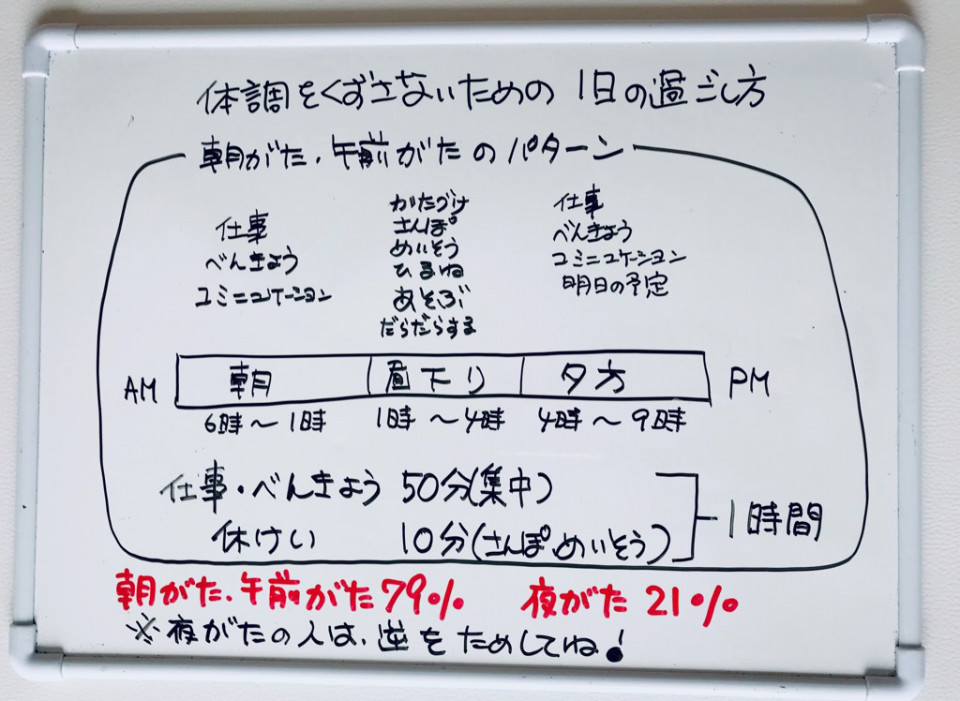 体調をくずさないための 1日の過ごし方
朝がた・午前がたのパターン
仕事
べんきょう
コミニュケーション
かたづけ
さんぽ
めいそう
ひるね
あそぶ
だらだらする
仕事
べんきょう
コミニュケーション
明日の予定
AM 朝 昼下り 夕方 PM
6時〜1時 1時〜4時 4時〜9時
仕事・べんきょう 50分(集中)
休けい 10分(さんぽ、めいそう)
1時間
朝がた、午前がた79% 夜がた 21%
※夜がたの人は、逆をためしてね!